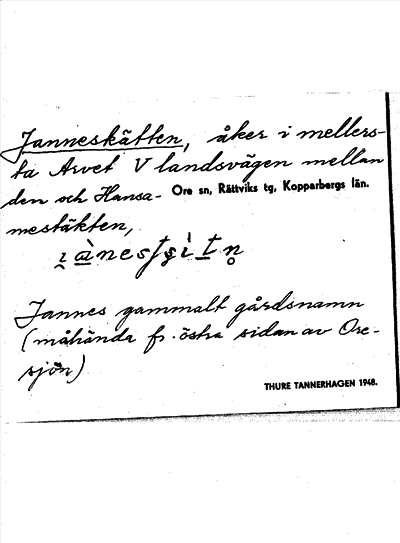 Janneskätten, åker i mellers-
ta Arvet V landsvägen mellan
den och Hansa- Ore sn, Rättviks tg, Kopparbergs län.
mestäkten,
Jannes gammalt gårdsnamn
(måhända fr. östra sidan av Ore-
sjön)
THURE TANNERHAGEN 1948.